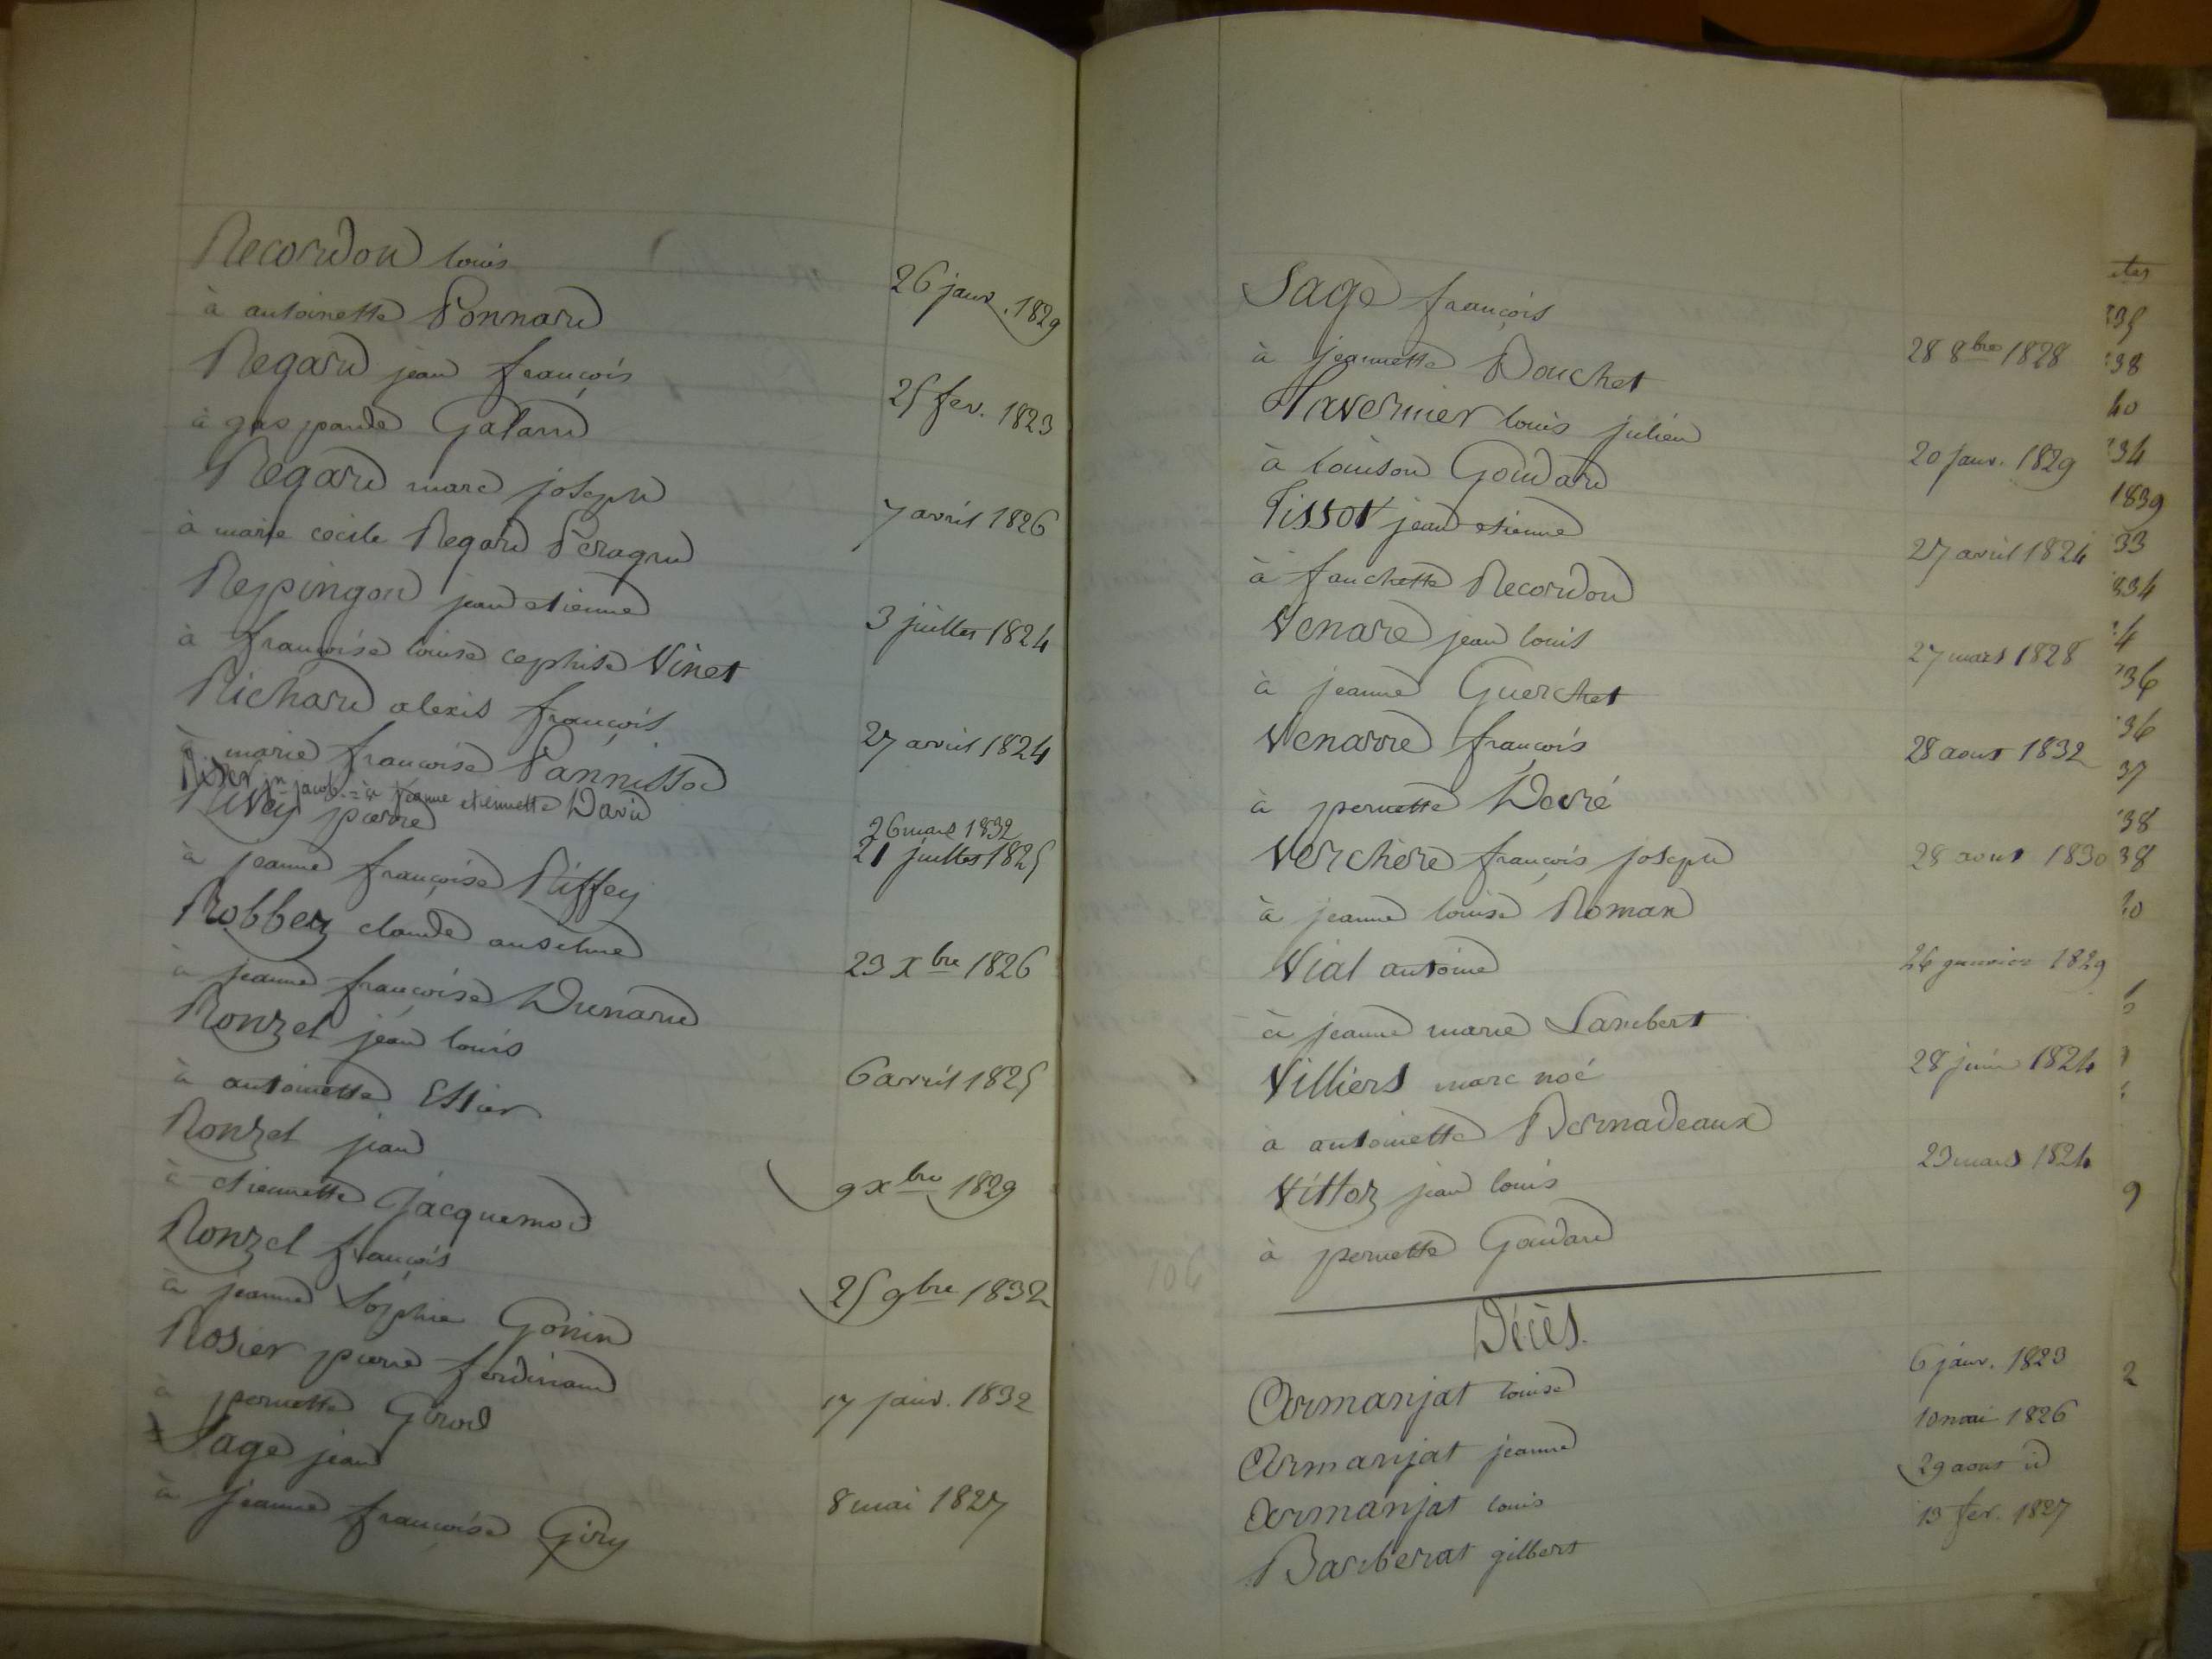 Recordon louis
à antoinette Ponnard 26 janv. 1829
Regard jean françois
à gasparde Galand 25 fev. 1823
Regard marc joseph
à marie cecile Regard Peragrud 7 avril 1826
Reppingon jean etienne
à françoise louise cephise Vinet 3 juillet 1824
Richard alexis françois
à marie françoise Pannissod 27 avril 1824
jn jacob = à jeanne etiennette David 26 mars 1832
Rivey pierre 21 juillet 1825
à jeanne françoise Riffey
Robbez claude anselme
à jeanne françoise Dunand 23 Xbre 1826
Ronzel jean louis
à antoinette Essier 6 avril 1825
Ronzel jean
à etiennette Jacquemod 9 xbre 1829
Ronzel françois
à jeanne Sophie Gonin 25 9bre 1832
Rosier pierre ferdinand
à pernette Girod 17 janv. 1832
Sage jean
à jeanne françoise Giry 8 mai 1827
Sage françois
à jeannette Bouchet 28 8bre 1828
Tavernier louis julien
à louison Goudard 20 janv. 1829
Tissot jean etienne
à fanchette Recordon 27 avril 1824
Venare jean louis
à jeanne Guerchet 27 mars 1828
Venarre françois
à pernette Devré 28 aout 1832
Verchère françois joseph 28 aout 1830
à jeanne louise Roman
Vial antoine 26 janvier 1829
à jeanne marie Lambert
Villiers marc noé 28 juin 1824
à antoinette Bernadeaux
Vittoz jean louis 23 mars 1824
à pernette Goudard
106
Décès.
Armanjat louise 6 janv. 1823
Armanjat jeanne 10 mai 1826
Armanjat louis 29 aout id
Barberat gilbert 13 fev. 1827
1839